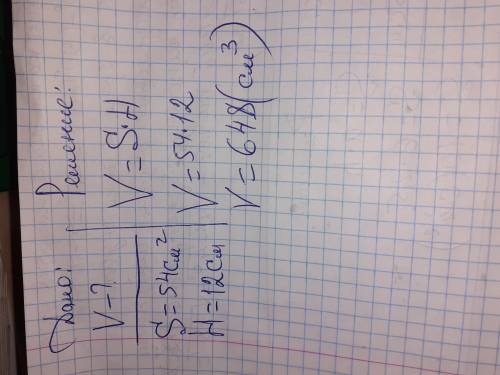 Дано:
V = ?
S = 54 см²
H = 12 см
Решение:
V = S·H
V = 54·12
V = 648 (см³)